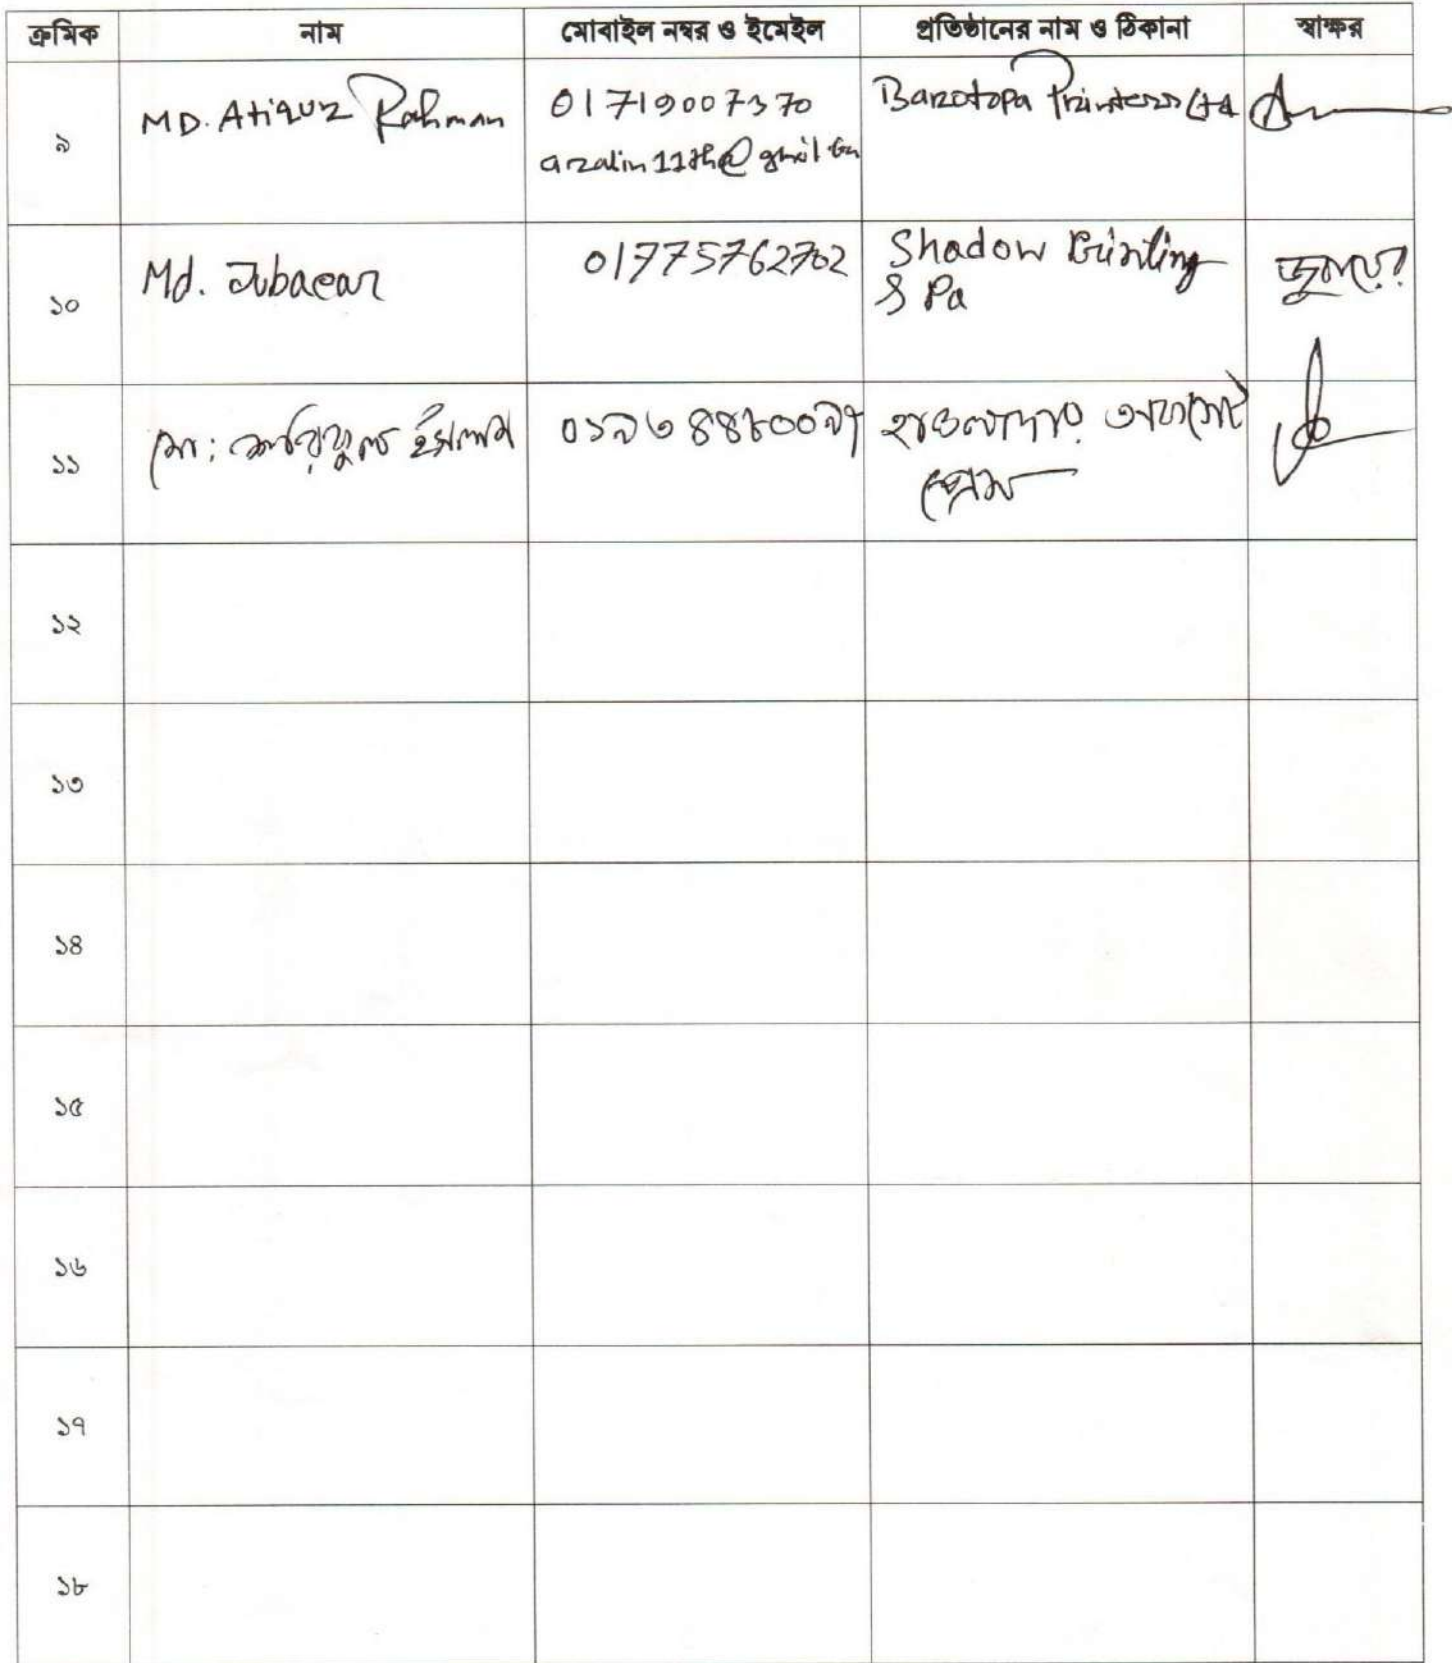 ক্রমিক নাম মোবাইল নম্বর ও ইমেইল প্রতিষ্ঠানের নাম ও ঠিকানা স্বাক্ষর
৯ MD. Atiqur Rahman 01719007370 Barotopa Printers Ltd
১০ Md. Jubaear 01775762702 Shadow Printing
& Pa
১১ মো: আরিফুল ইসলাম ০১৯৩৪৪৮০০৯৭ হাওলাদার অফসেট
প্রেস
১২
১৩
১৪
১৫
১৬
১৭
১৮